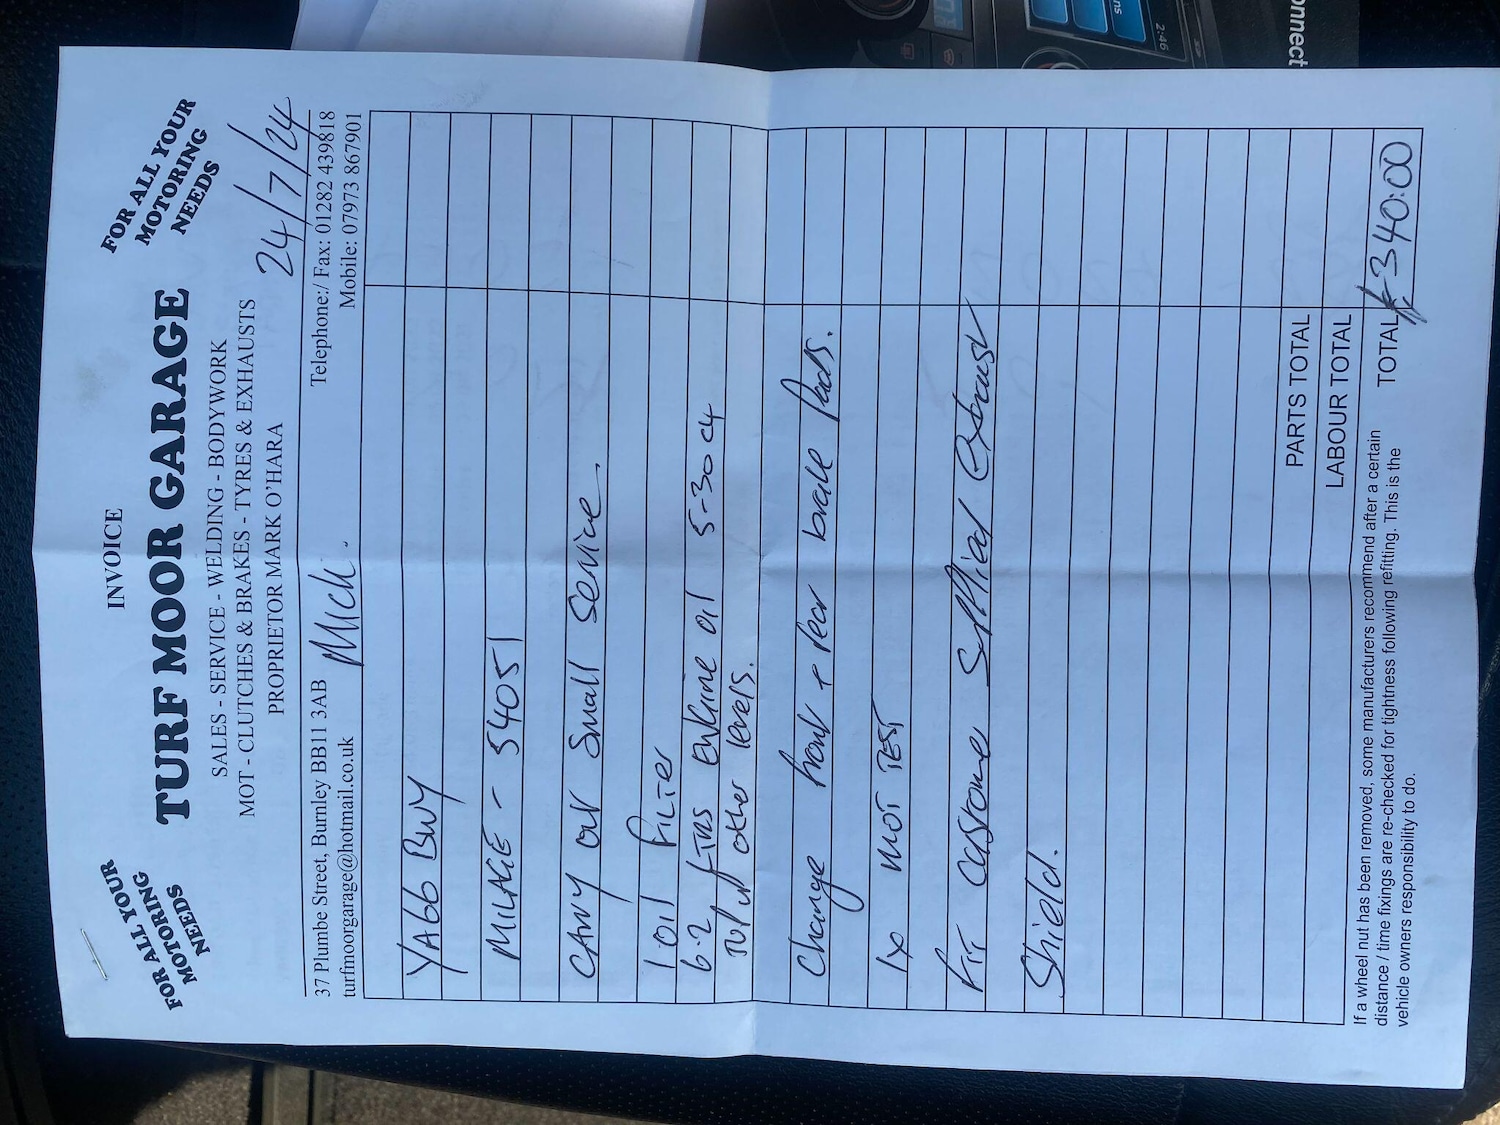 INVOICE
FOR ALL YOUR
MOTORING
NEEDS
TURF MOOR GARAGE
FOR ALL YOUR
MOTORING
NEEDS
SALES - SERVICE - WELDING - BODYWORK
MOT - CLUTCHES & BRAKES - TYRES & EXHAUSTS
PROPRIETOR MARK O'HARA
24/7/24
37 Plumbe Street, Burnley BB11 3AB
Mick.
Telephone:/ Fax: 01282 439818
turfmoorgarage@hotmail.co.uk
Mobile: 07973 867901
YA66 BWY
MILAGE - 54051
CARRY out Small Service.
1 oil FILTER
6.2 LTRS ENGINE oil 5-30 C4
other levels.
Change front + rear brake Pads.
1x MOT TEST
FIT Customer Supplied Exhaust
Shield.
PARTS TOTAL
LABOUR TOTAL
TOTAL £340:00
If a wheel nut has been removed, some manufacturers recommend after a certain
distance / time fixings are re-checked for tightness following refitting. This is the
vehicle owners responsibility to do.
onnect
ns
2:46